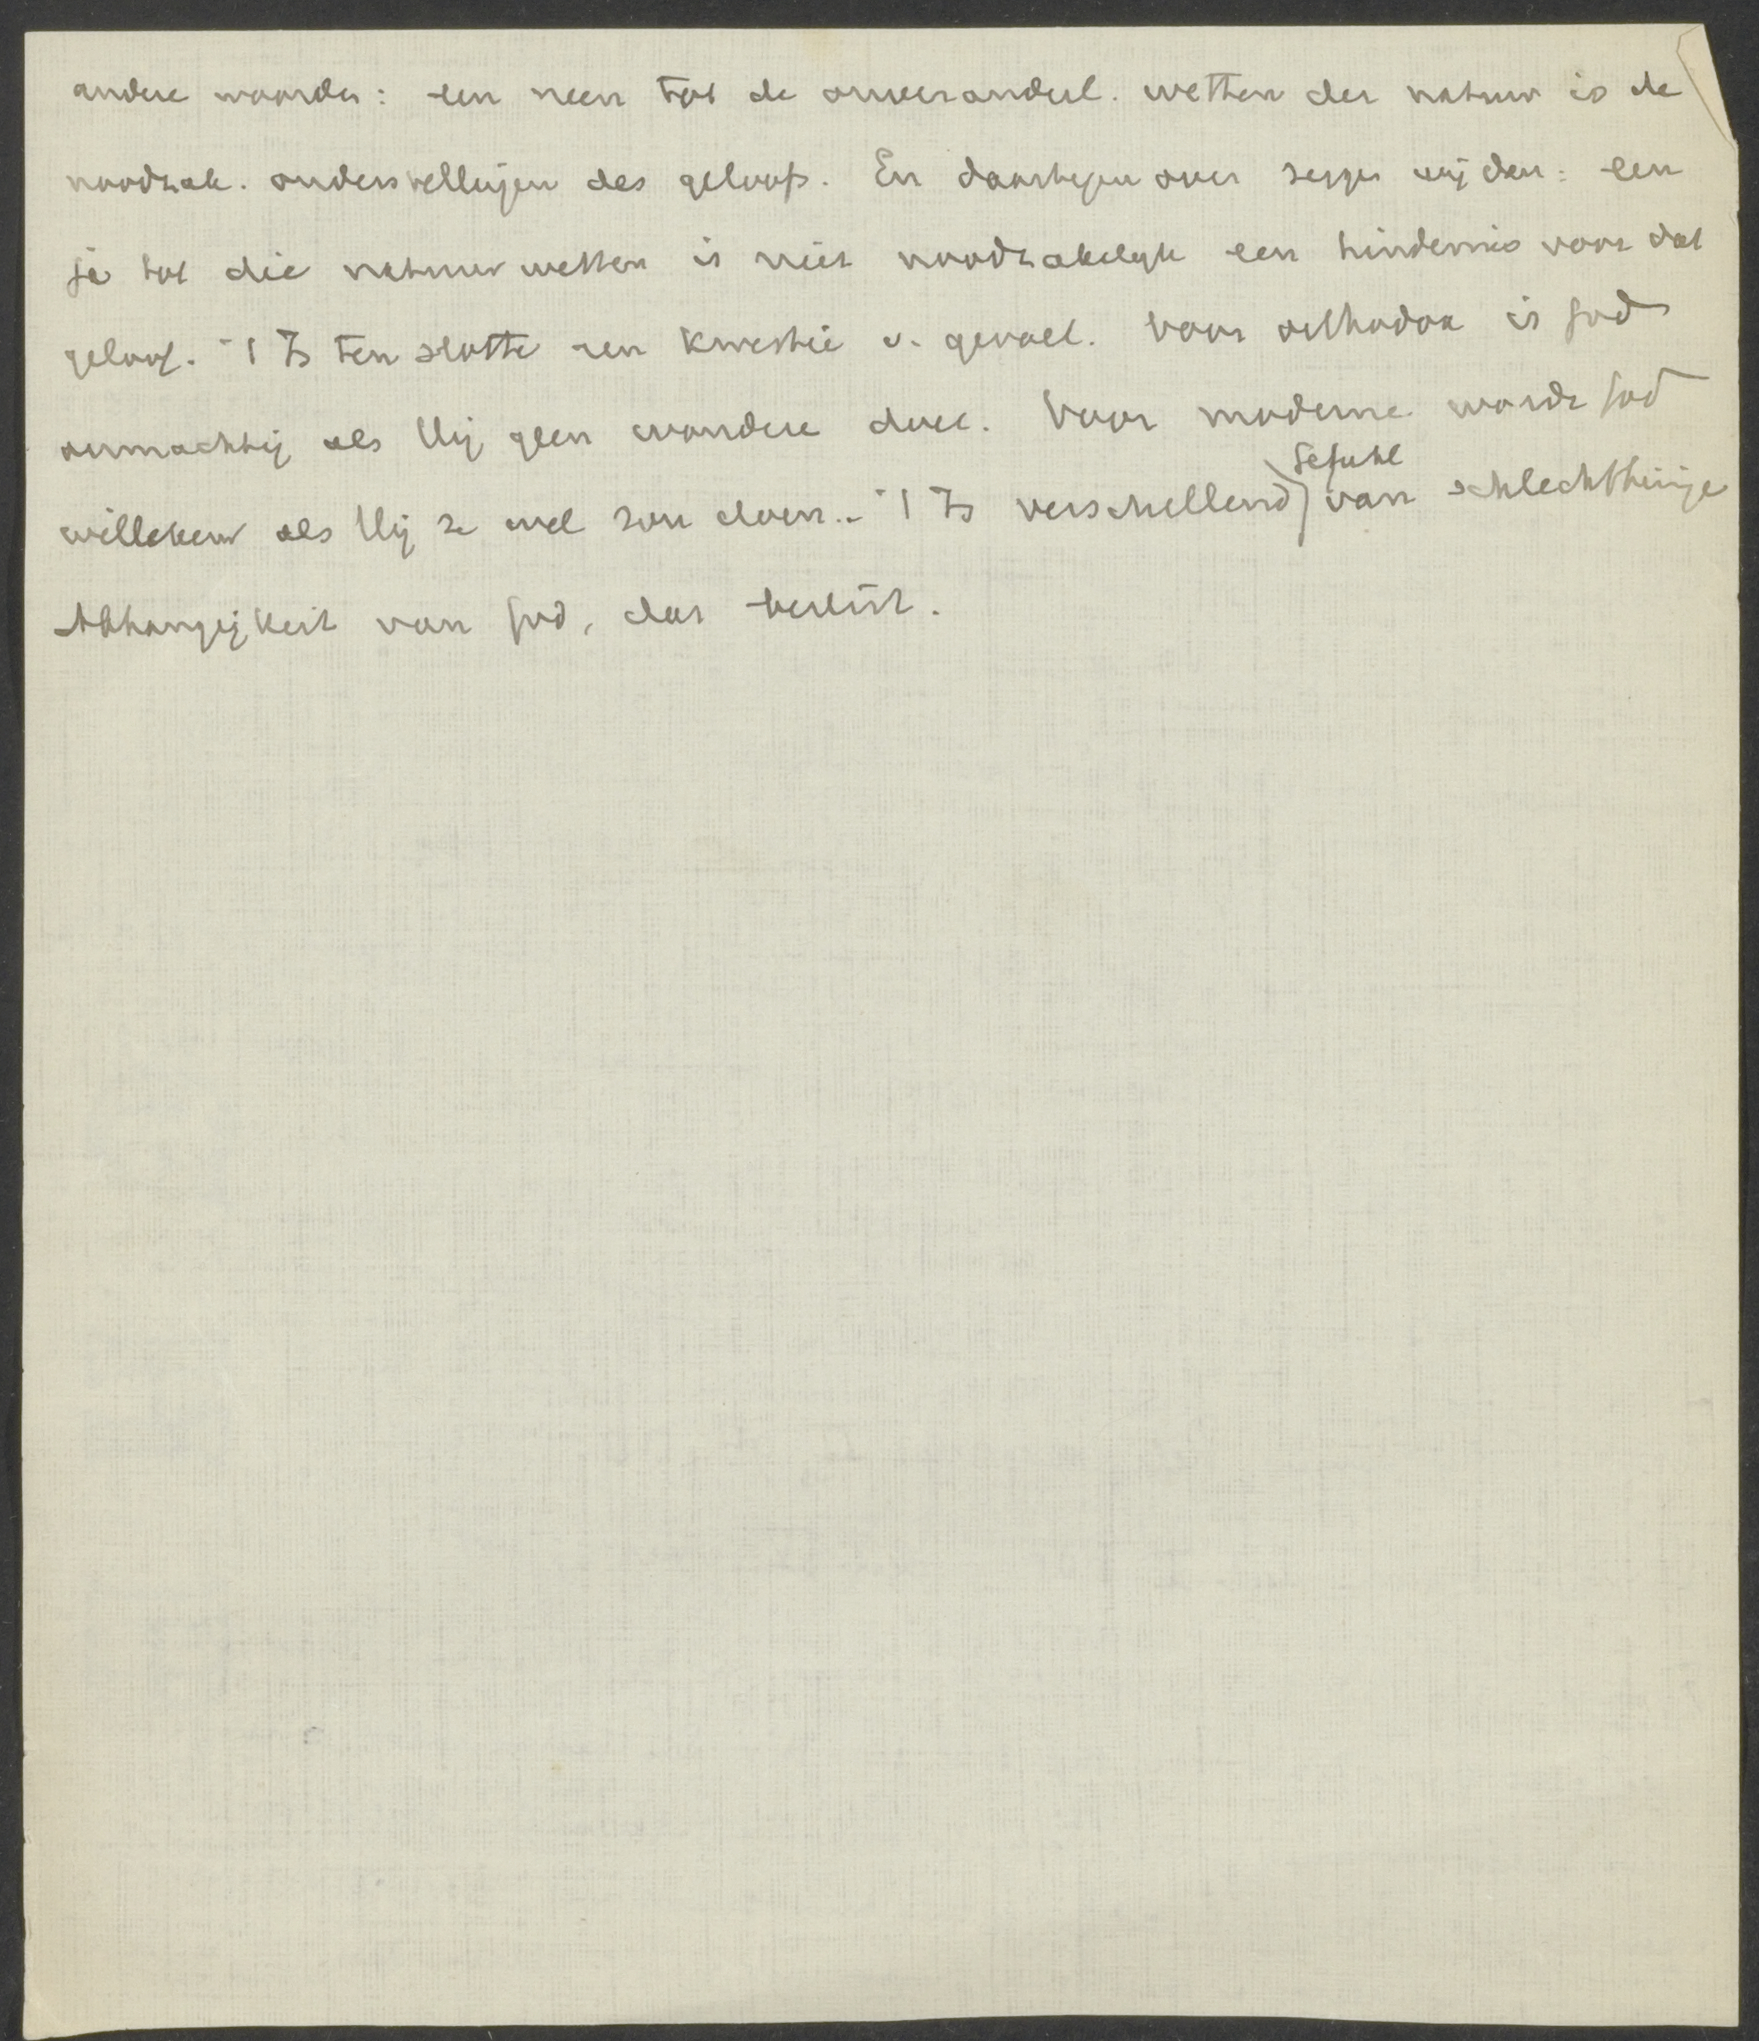 andere woorden: een neen tot de onveranderl. wetten der natuur is de
noodzak. onderstellingen des geloofs. En daartegenover zeggen wij dan: een
ja tot die natuurwetten is niet noodzakelijk een hindernis voor dat
geloof. 't Is ten slotte een kwestie v. gevoel. Voor orthodox is God
onmachtig als Hij geen wonderen doet. Voor moderne wordt God
willekeur als Hij ze wel zou doen. - 't Is verschillend Gefuhl van schlechthinige
Abhangigkeit van God, dat beslist.